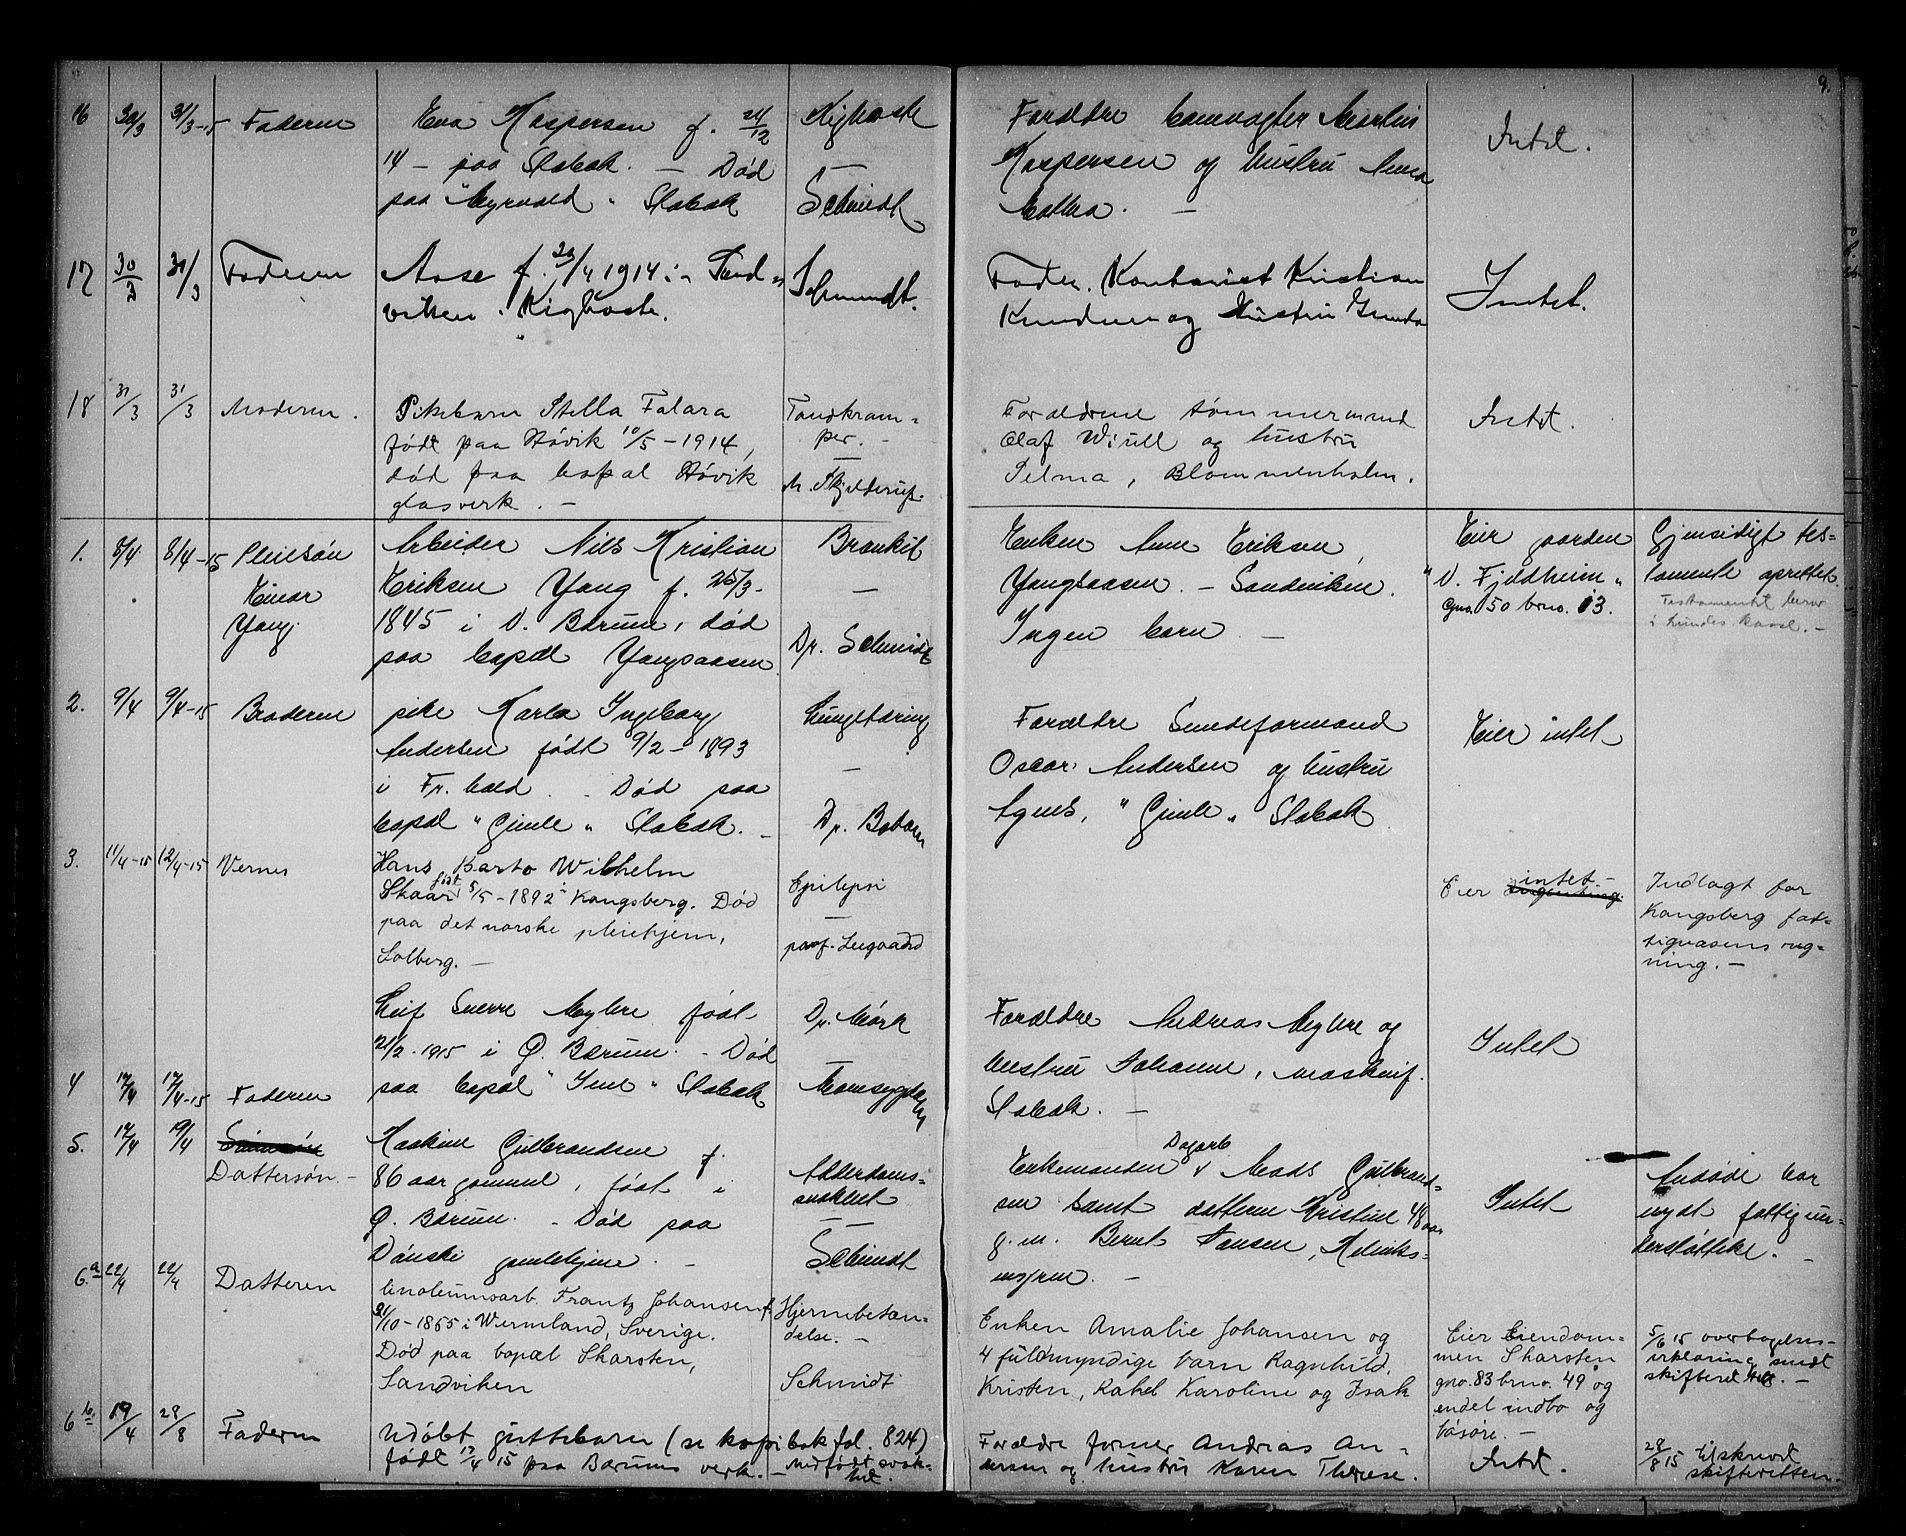 9.
16 30/3 31/3-15 Faderen Eva Kaspersen f. 24/12 Kighoste Forældre Martin Intet.
14 – paa Stabæk. – Død – Kaspersen og hustru Anna
paa "Myrvold" Stabæk Schmidt
17 30/3 31/3 Faderen Aase f. 4 1914 i Sand- Schmidt. Fader, Kontorist Kristian Intet.
viken. Kighoste. Knudsen og Hustru Gunda
18 31/3 31/3 Moderen. Pikebarn Stella Falara Tandkram- Forældrene tømmermand Intet.
født paa Høvik 10/5 – 1914, per. – Olaf Wiull og hustru
død paa bopæl Høvik Selma, Blommenholm.
glasverk. – M. Skjelderup.
1. 8/4 8/4-15 Pleiesøn Arbeider Nils Kristian Brænkit Enken Anne Eriksen, Eier gaarden Gjensidigt tes-
Einar Eriksen Yang f. 25/3- – Yangsaasen. – Sandviken. "N. Fjeldheim" tamente oprettet.
Yang. 1845 i V. Bærum, død Ingen barn – gno. 50 bno. 13. Testamentet beror
paa bopæl Yangsaasen Dr. Schmidt
2. 9/4 9/4-15 Broderen pike Karla Ingeborg Lungetæring Forældre formand Eier intet
Andersen født 9/2 – 1893 Oscar Andersen og hustru
i Fr. hald. – Død paa – Agnes, "Gimle" Stabæk
bopæl "Gimle" Stabæk. – Dr.
3. 11/4-15 12/4-15 Vernes Hans Barto Wilhelm Epilepsi Eier intet – Indlagt for
Skaar født 5/5 – 1892 i Kongsberg. Død – Kongsberg fat-
paa det norske pleiehjem, prof. tigvæsens reg-
Solberg. – ning. –
Leif Sverre Myhre født Dr. Mørk Forældre Andreas Myhre og Intet
21/2 - 1915 i Ø. Bærum. – Død – hustru Johanne, maskinf.
4 17/4 17/4-15 Faderen paa bopæl Stabæk Stabæk. –
5. 17/4 19/4 Dattersøn. – Gulbrandsen f. Alderdoms- Enkemanden Dagarb Mads Gulbrand- Intet Avdøde har
86 aar gammel, født i svakhet sen samt datteren Kristine 48 aar nydt fattigun-
Ø. Bærum. – Død paa – g. m. Bernt Hansen, Henriks- derstøttelse. –
gamlehjem. – Schmidt
6.a 22/4 22/4 Datteren Linoleumsarb. Frantz Johansen f. Hjernebetæn- Enken Amalie Johansen og Eier Eiendom- 5/6 15 overtagelses-
31/10 – 1865 i Wermland, Sverige. delse. – 4 fuldmyndige barn Ragnhild, men Skarsten erklæring sendt
Død paa bopæl Skarsten, Kristen, Rakel Karoline og Isak gno. 83 bno. 49 og skifteret
Sandviken Schmidt endel indbo og
løsøre. –
6b 19/4 28/8 Faderen Udøbt guttebarn (se kopibok fol. 824) Forældre former Andreas An- Intet. 28/8 15 tilskrevet
født 17/4 15 paa Bærums verk. – Medfødt svak- dersen og hustru Karen Therese. skifteretten.
het.